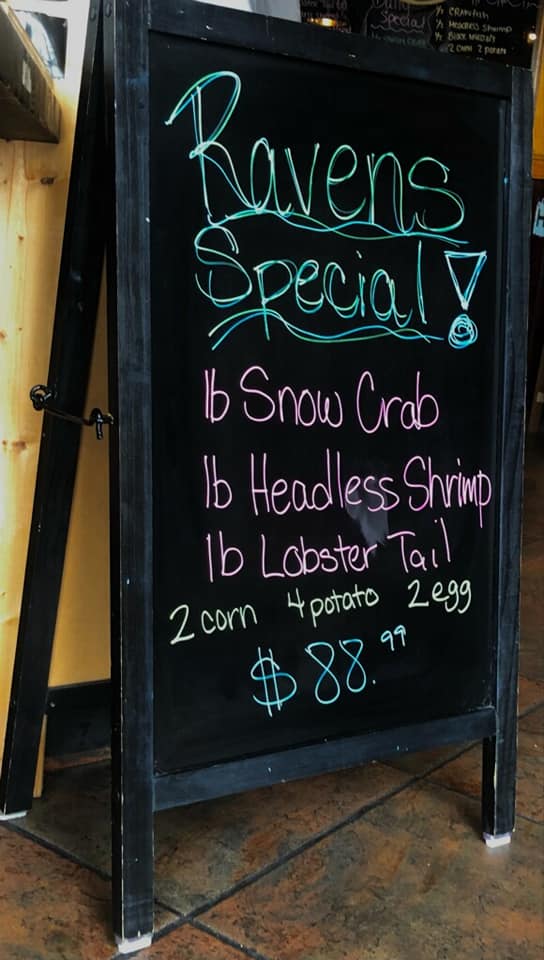 Daily
Special
½ Crawfish
½ Headless Shrimp
2 corn 2 potato
Ravens
Special!
lb Snow Crab
lb Headless Shrimp
lb Lobster Tail
2 corn 4 potato 2 egg
$88.99